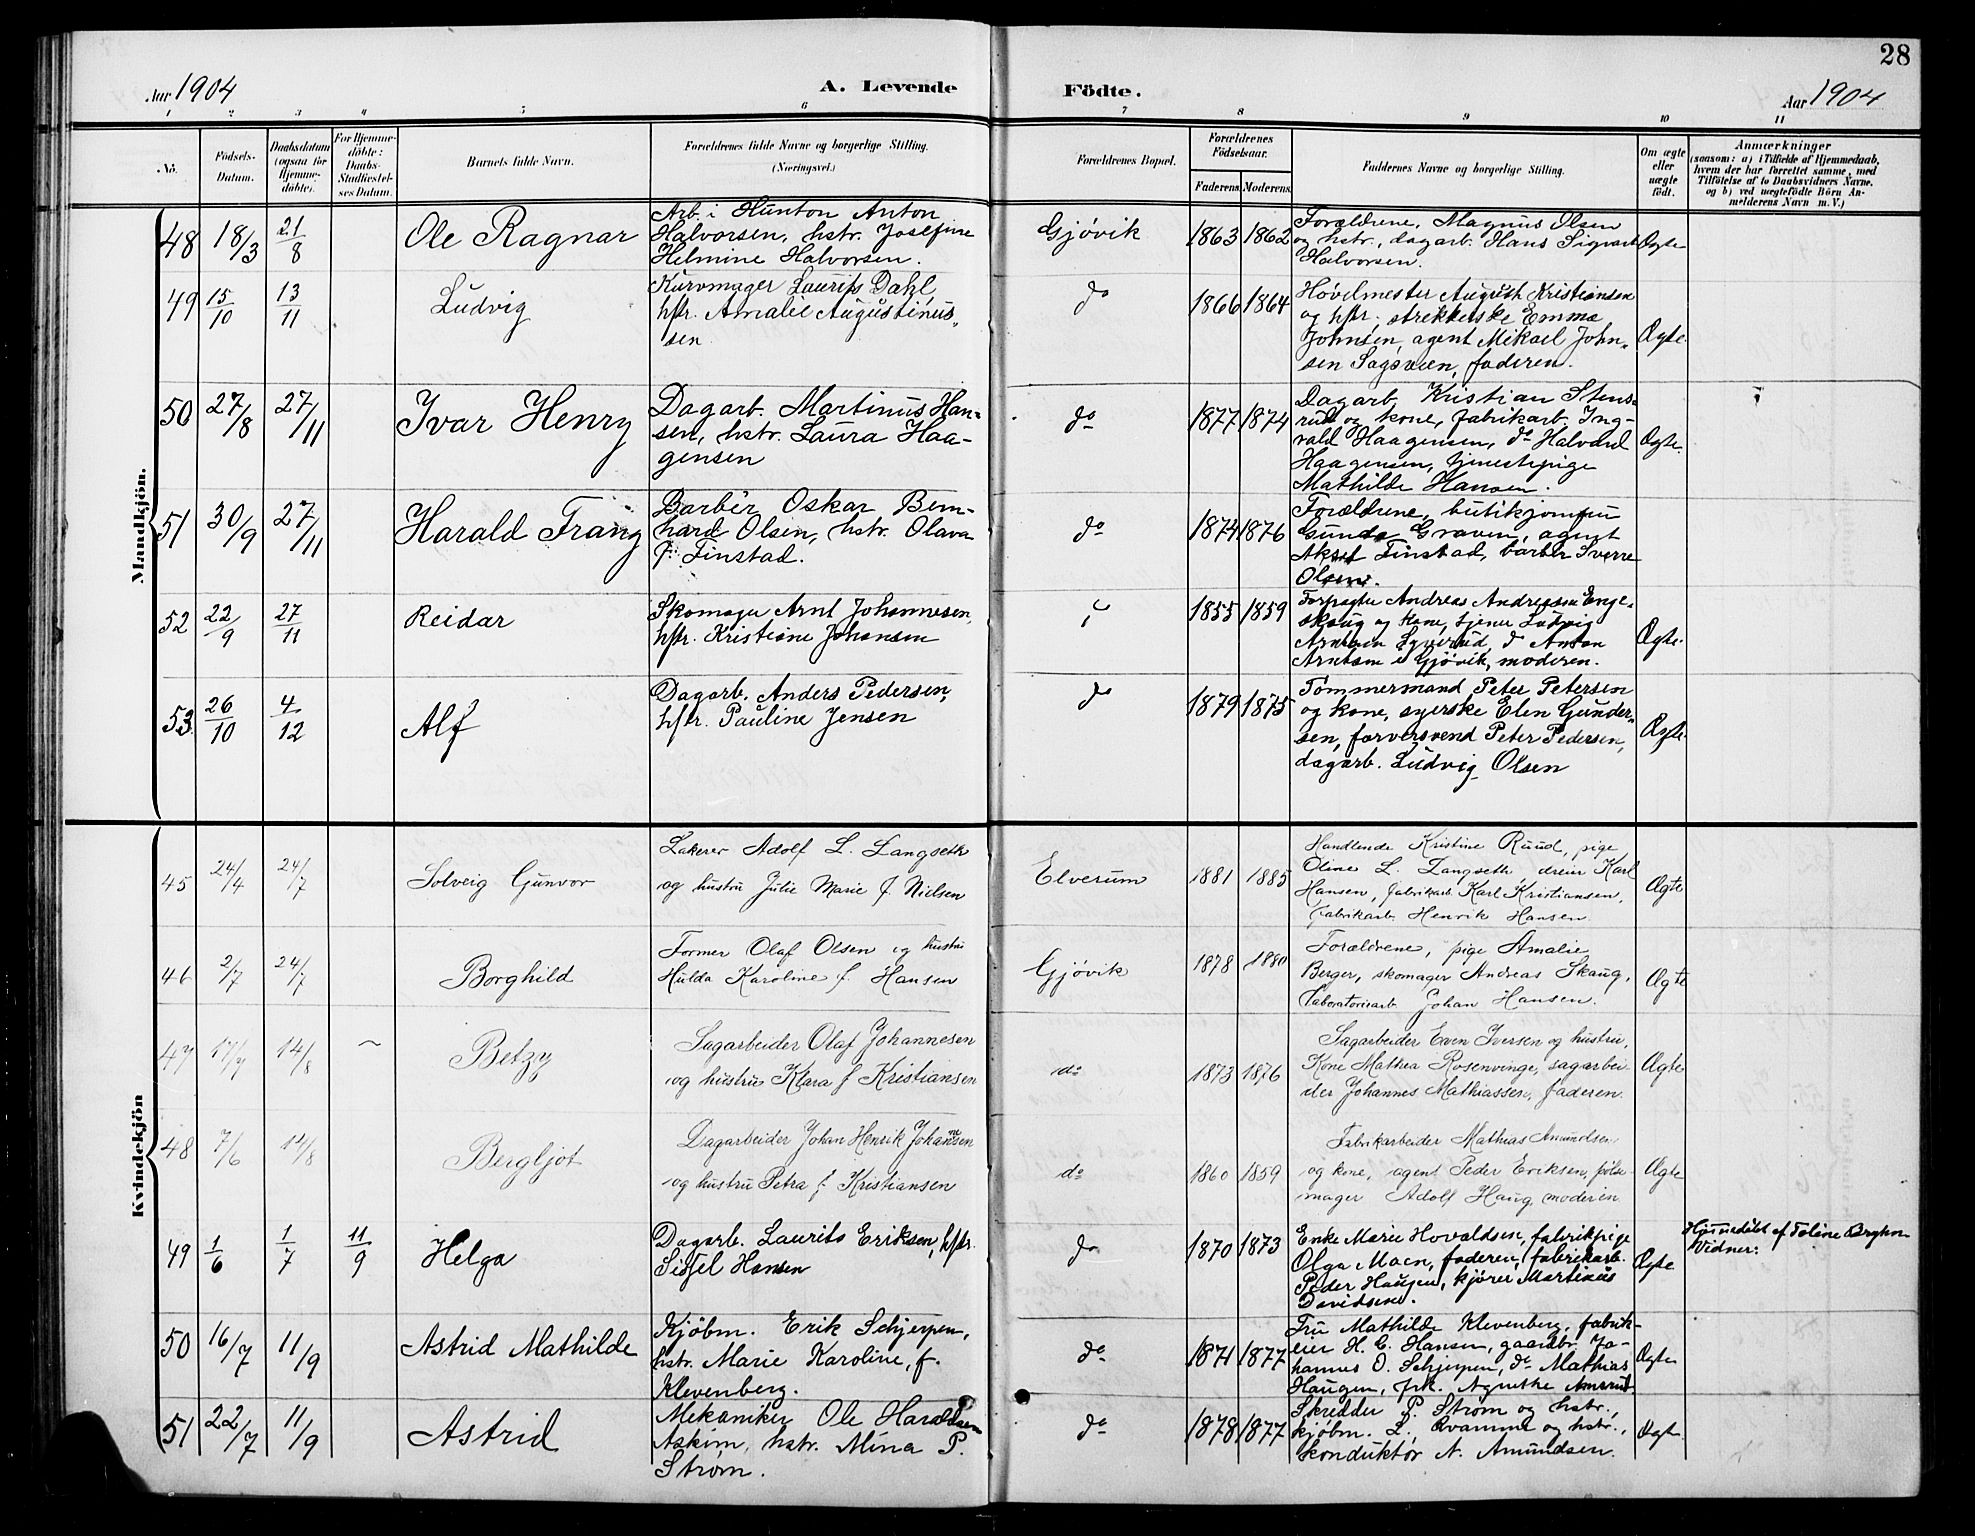 28
Aar 1904
A. Levende
Födte.
Aar 1904
1 2 3 4 5 6 7 8 9 10 11
No.
Födsels-
Datum.
Daabsdatum
(ogsaa for
Hjemme-
døbte).
For Hjemme-
døbte:
Daabs-
Stadfæstel-
ses Datum.
Barnets fulde Navn.
Forældrenes fulde Navne og borgerlige Stilling.
(Næringsvei.)
Forældrenes Bopæl.
Forældrenes
Födselsaar.
Faderens.
Moderens.
Faddernes Navne og borgerlige Stilling.
Om ægte
eller
uægte
født.
Anmærkninger
(saasom: a) i Tilfælde af Hjemmedaab,
hvem der har forrettet samme, med
Tilföielse af to Daabsvidners Navne.
og b) ved uægtefødte Börn An-
melderens Navn m. V.)
Mandkjön.
48 18/3 21/8 Ole Ragnar
Arb. i Hunton Anton
Halvorsen, hstr. Josefine
Helmine Halvorsen.
Gjøvik 1863 1862
Forældrene, Magnus Olsen
og hstr., dagarb. Hans Sigvart
Halvorsen.
Ægte
49 15/10 13/11 Ludvig
Kurvmager Laurits Dahl
hstr. Amalie Augustinus-
sen
do 1866 1864
Høvelmester August Kristiansen
og hstr., strekkerske Emma
Johnsen, agent Mikael John-
sen Sagsveen, faderen.
Ægte.
50 27/8 27/11 Ivar Henry
Dagarb. Martinus Han-
sen, hstr. Laura Haa-
gensen
do 1877 1874
Dagarb. Kristian Stens-
rud og kone, fabrikarb. Ing-
vald Haagensen, do Halvard
Haagensen, tjenestepige
Mathilde Hansen.
Ægte.
51 30/9 27/11 Harald Frang
Barbér Oskar Bern-
hard Olsen, hstr. Olava
f. Finstad.
do 1874 1876
Forældrene, butikjomfru
Gunda Graven, agent
Aksel Finstad, barber Sverre
Olsen.
52 22/9 27/11 Reidar
Skomager Arnt Johannesen,
hstr. Kristiane Johansen
1855 1859
Forpagter Andreas Andreasen Enge-
skaug og kone, tjener Ludvig
Arntsen do Anton
Arntsen i Gjøvik, moderen.
Ægte.
53 26/10 4/12 Alf
Dagarb. Anders Pedersen,
hstr. Pauline Jensen
do 1879 1875
Tømmermand Peter Petersen
og kone, syerske Elen Gunder-
sen, farversvend Peter Pedersen,
dagarb. Ludvig Olsen
Ægte.
Kvindekjön
45 24/4 24/7 Solveig Gunvor
Lakerer Adolf L. Langseth
og hustru Julie Marie f. Nielsen
Elverum 1881 1885
Handlende Kristine Ruud, pige
Oline L. Langseth, dreier Karl
Hansen, fabrikarb. Karl Kristiansen,
fabrikarb. Henrik Hansen.
Ægte
46 2/7 24/7 Borghild
Former Olaf Olsen og hustru
Hulda Karoline f. Hansen
Gjøvik 1878 1880
Forældrene, pige Amalie
Berger, skomager Andreas Skaug,
Laboratoriearb. Johan Hansen.
Ægte
47 17/7 14/8 ~ Betzy
Sagarbeider Olaf Johannesen
og hustru Klara f. Kristiansen
do 1873 1876
Sagarbeider Even Iversen og hustru,
Kone Mathea Rosenvinge, sagarbei-
der Johannes Mathiassen, faderen.
Ægte
48 7/6 14/8 Bergljot
Dagarbeider Johan Henrik Johannesen
og hustru Petra f. Kristiansen
do 1860 1859
Fabrikarbeider Mathias Amundsen
og kone, agent Peder Eriksen, pølse-
mager Adolf Haug, moderen.
Ægte
49 1/6 1/7 11/9 Helga
Dagarb. Laurits Eriksen, hstr.
Sissel Hansen
do 1870 1873
Enke Marie Hovaldsen, fabrikpige
Olga Moen, faderen, fabrikarb.
Peder Haugen, kjører Martinus
Davidsen.
Ægte
Hjemmedøbt af
Vidner:
50 16/7 11/9 Astrid Mathilde
Kjøbm. Erik Schjerpen,
hstr. Marie Karoline, f.
Klevenberg.
do 1871 1877
Fru Mathilde Klevenberg, fabrik-
eier H. C. Hansen, gaardbr. Jo-
hannes O. Schjerpen, do Mathias
Haugen, frk. Agnethe Amrud
Ægte
51 22/7 11/9 Astrid
Mekaniker Ole Haraldsen
Askim, hstr. Mina P.
Strøm.
do 1878 1877
Skredder P. Strøm og hstr.,
kjøbm. L. Kvamme og hstr.,
konduktør N. Amundsen.
Ægte